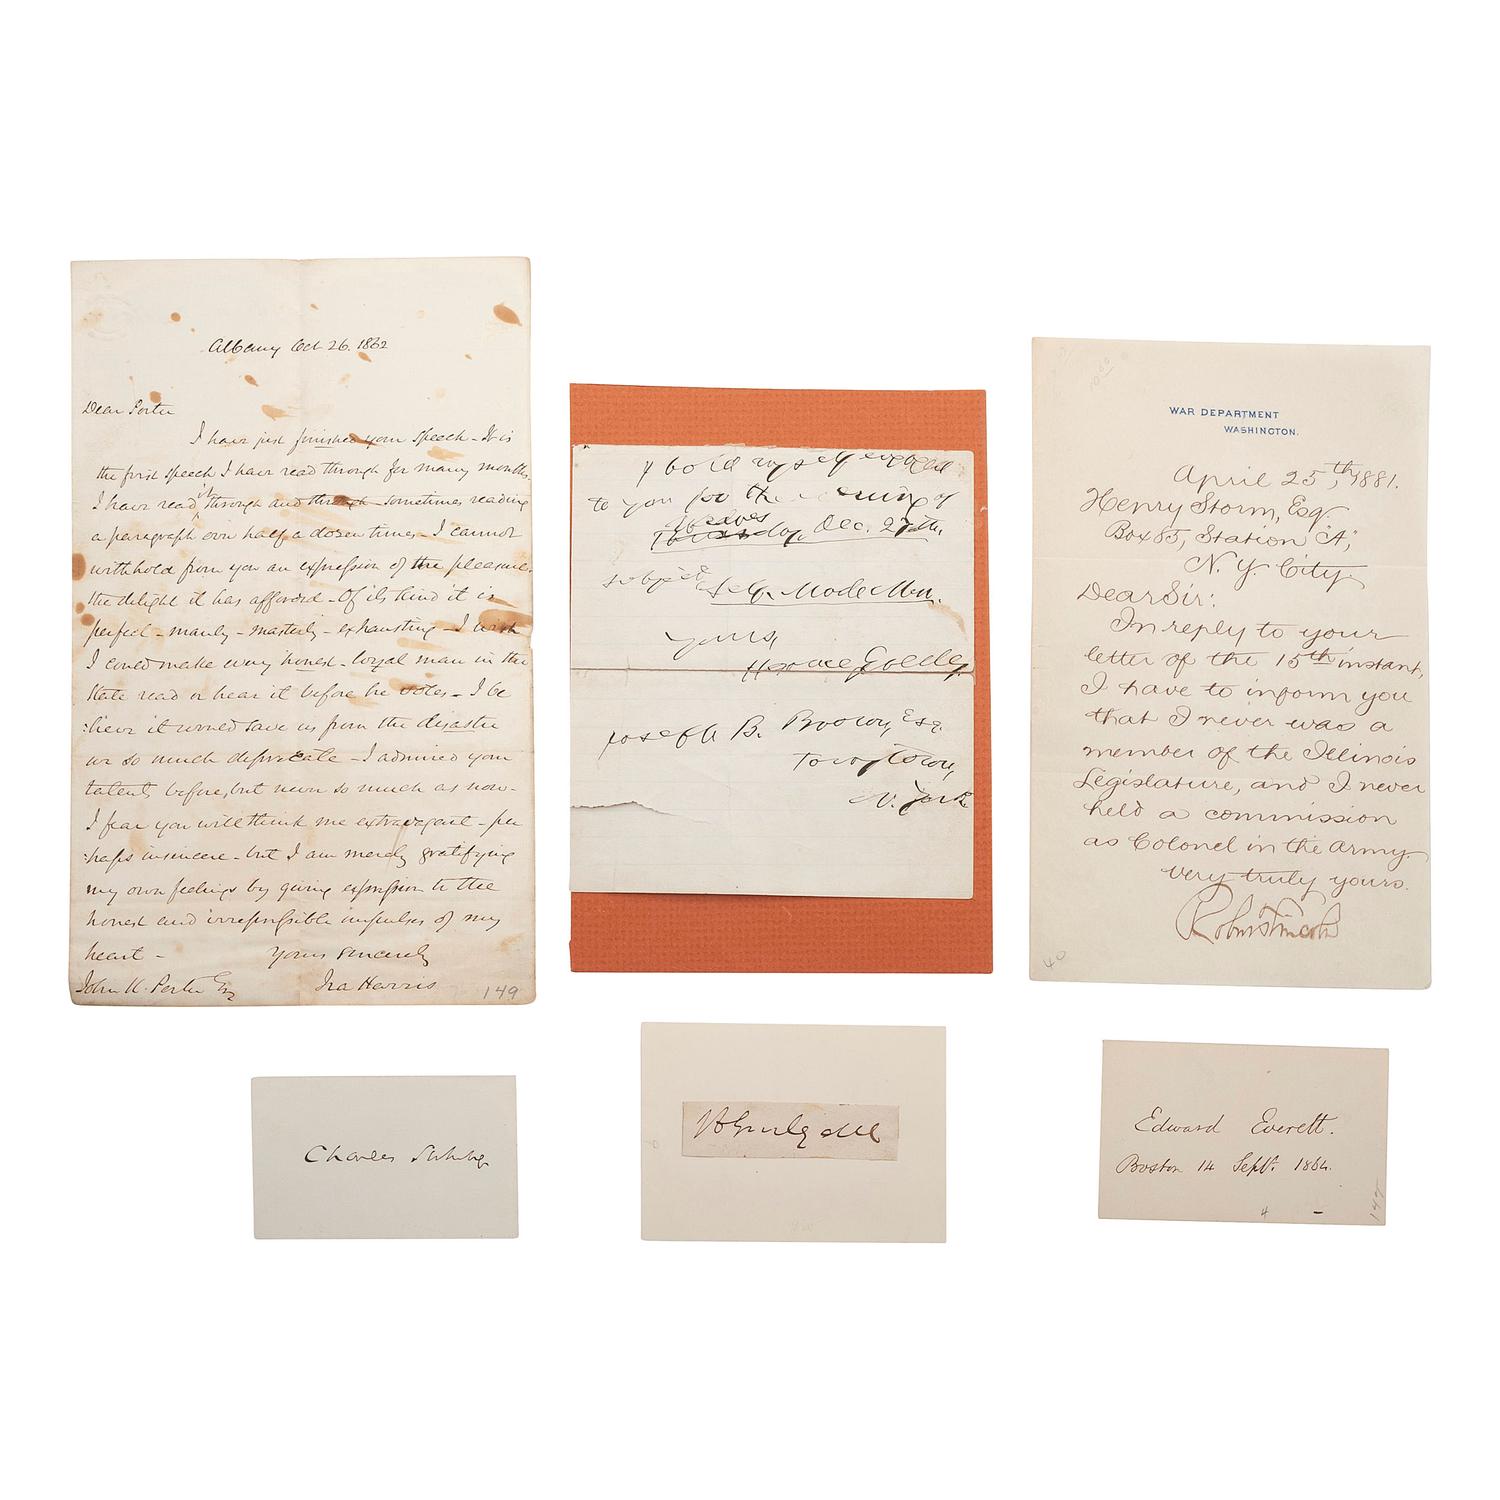 Albany Oct 26. 1862
Dear Porter
I have just finished your speech - It is
the first speech I have read through for many months.
I have read it through and through - sometimes reading
a paragraph over half a dozen times - I cannot
withhold from you an expression of the pleasure -
the delight it has afforded - Of its kind it is
perfect - manly - masterly - exhausting - I wish
I could make every honest - loyal man in the
State read or hear it before he votes - I be
:lieve it would save us from the disaster
we so much deprecate - I admired your
talents before, but never so much as now -
I fear you will think me extravagant - per
:haps insincere - but I am merely gratifying
my own feelings by giving expression to the
honest and irrepressible impulses of my
heart - Yours sincerely
John K. Porter Esq Ira Harris 149
I hold myself engaged
to you for the evening of
Wednes
Thursday, Dec. 27th.
subject, Self-Made Men.
Yours,
Horace Greeley.
Joseph B. Esq.
Tarrytown,
N. York
WAR DEPARTMENT
WASHINGTON.
April 25th, 1881.
Henry Storm, Esq.
Box 85, Station "A",
N. Y. City
Dear Sir:
In reply to your
letter of the 15th instant,
I have to inform you
that I never was a
member of the Illinois
Legislature, and I never
held a commission
as Colonel in the Army.
Very truly yours.
Robert T. Lincoln
40
Charles
Edward Everett.
Boston 14 Sept. 1864.
4 -
147